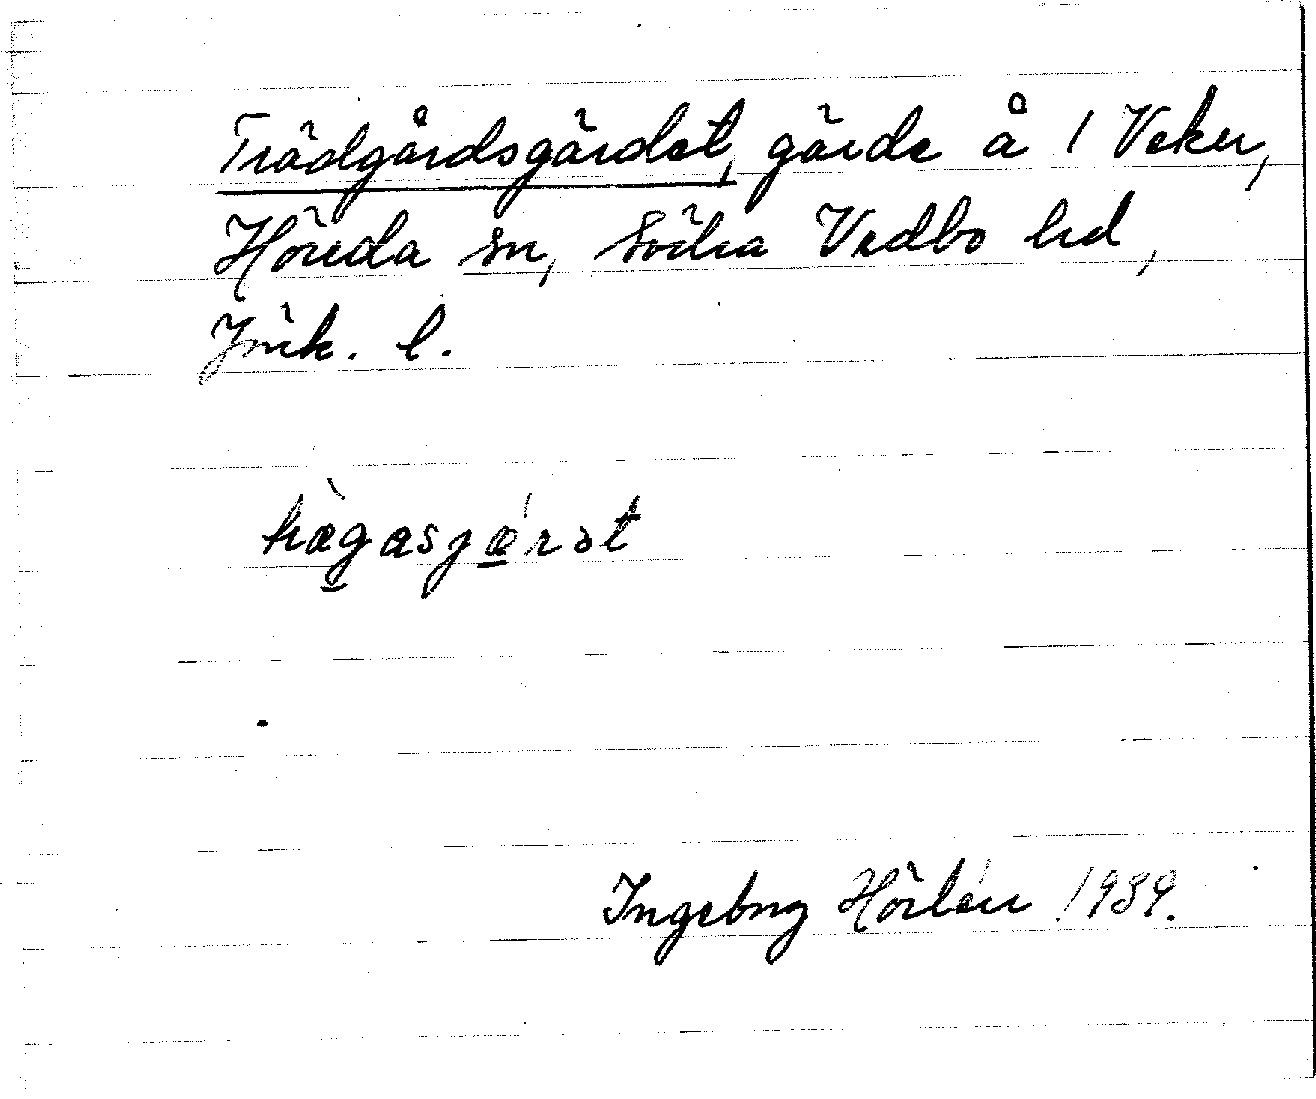 Trädgårdsgärdet, gärde å 1 Veker,
Höreda sn, Södra Vedbo hd,
Jönk. l.
trǽgasjǽrət
Ingeborg Hörlén 1989.